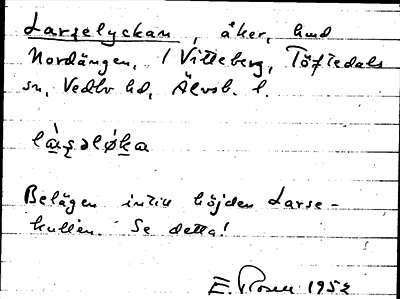 Larselyckan, åker, hmd
Nordängen, 1 Vitteberg, Töftedals
sn, Vedbo hd, Älvsb. l.
làʂəløka
Belägen intill höjden Larse-
kullen. Se detta!
E. Rosen 1952